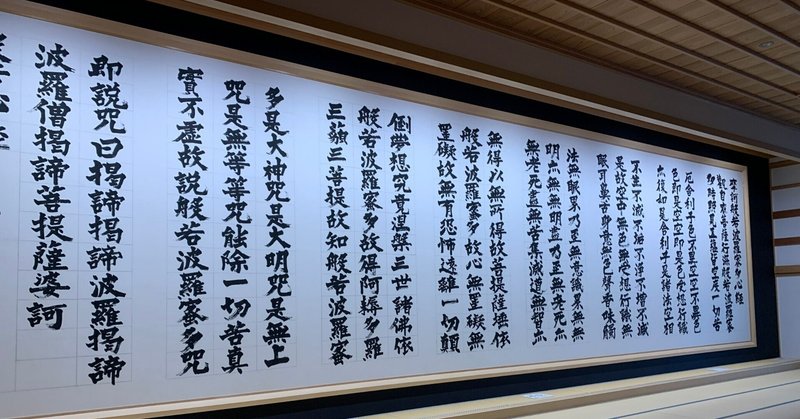 摩訶般若波羅蜜多心經
觀自在菩薩行深般若波羅蜜
多時照見五蘊皆空度一切苦
厄舍利子色不異空空不異色
色即是空空即是色受想行識
亦復如是舍利子是諸法空相
不生不滅不垢不淨不增不減
是故空中無色無受想行識無
眼耳鼻舌身意無色聲香味觸
法無眼界乃至無意識界無無
明亦無無明盡乃至無老死亦
無老死盡無苦集滅道無智亦
無得以無所得故菩提薩埵依
般若波羅蜜多故心無罣礙無
罣礙故無有恐怖遠離一切顛
倒夢想究竟涅槃三世諸佛依
般若波羅蜜多故得阿耨多羅
三藐三菩提故知般若波羅蜜
多是大神咒是大明咒是無上
咒是無等等咒能除一切苦真
實不虛故說般若波羅蜜多咒
即說咒曰揭諦揭諦波羅揭諦
波羅僧揭諦菩提薩婆訶